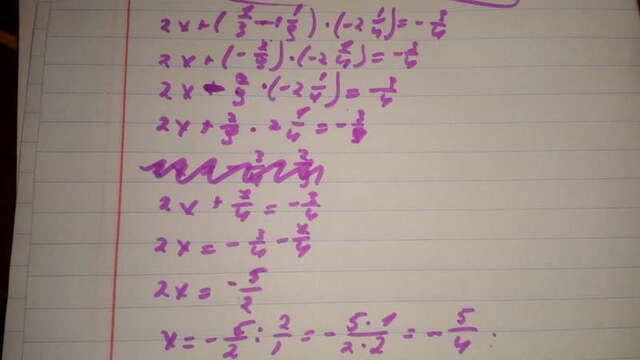 2x+(2/3-1 1/3)·(-2 1/4)=-3/4
2x+(-2/3)·(-2 1/4)=-3/4
2x-2/3·(-2 1/4)=-3/4
2x+2/3·2 1/4=-3/4
2x=-3/4-
2x=-5/2
x=-5/2:2/1=-5·1/2·2=-5/4.